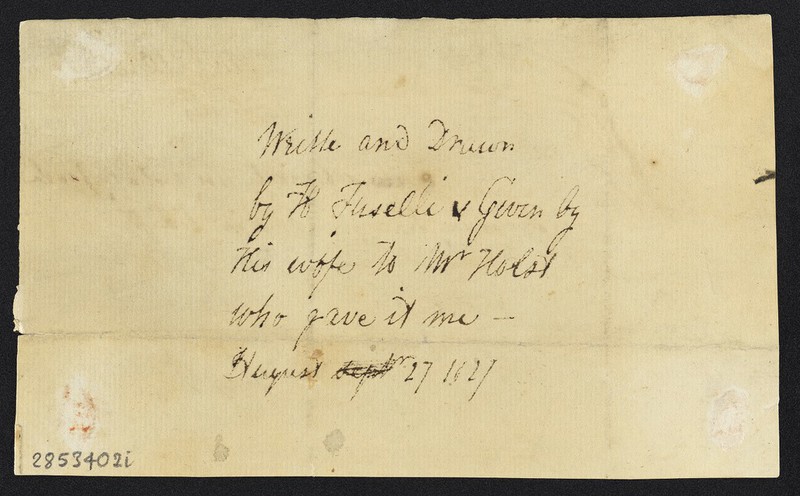 Writte and Drawn
by H Fuselli & Given by
his wife to Mr Holst
who gave it me —
August Septr 27 1827
2853402i